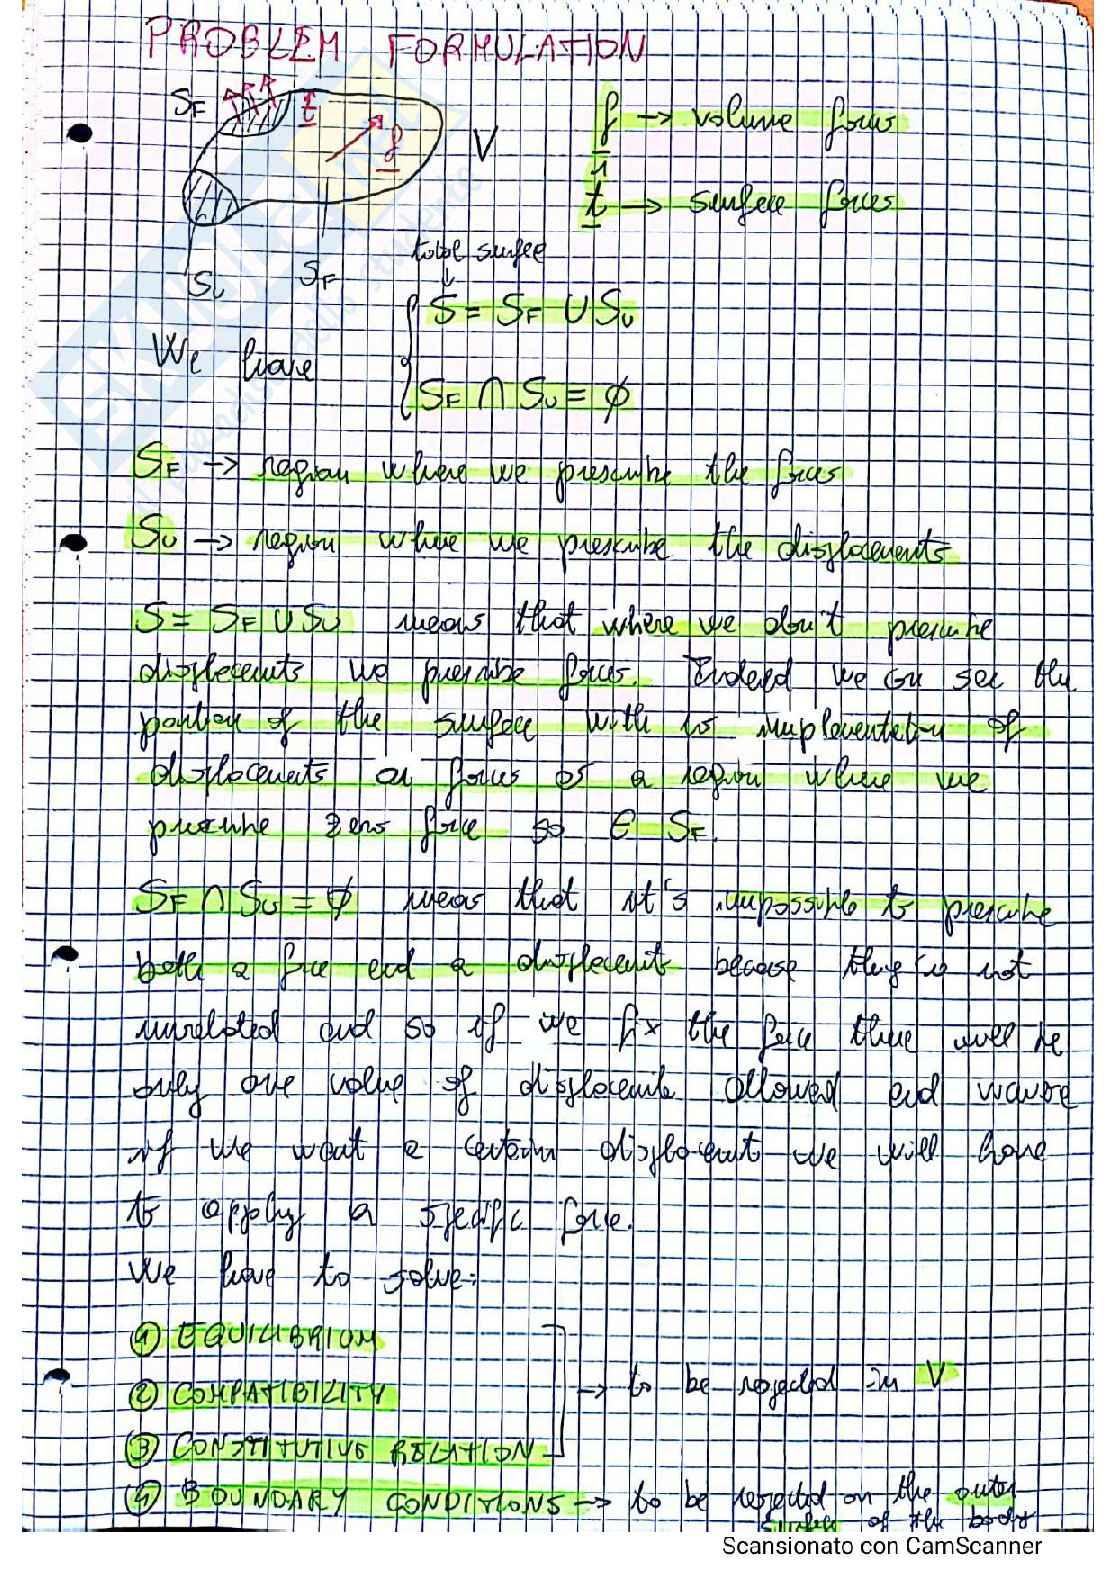 PROBLEM FORMULATION
S_F t f V
f → volume forces
t → surface forces
S_U S_F
total surface
We have
S = S_F ∪ S_U
S_F ∩ S_U = ∅
S_F → region where we prescribe the forces
S_U → region where we prescribe the displacements
S = S_F ∪ S_U means that where we don't prescribe
displacements we prescribe forces. Indeed we can see the
portion of the surface with no implementation of
displacements or forces as a region where we
prescribe zero force so ∈ S_F.
S_F ∩ S_U = ∅ means that it's impossible to prescribe
both a force and a displacement because they're not
unrelated and so if we fix the force there will be
only one value of displacement allowed and
if we want a certain displacement we will have
to apply a specific force.
We have to solve:
① EQUILIBRIUM
② COMPATIBILITY
③ CONSTITUTIVE RELATION
→ to be respected in V
④ BOUNDARY CONDITIONS → to be respected on the outer
surface of the body
Scansionato con CamScanner